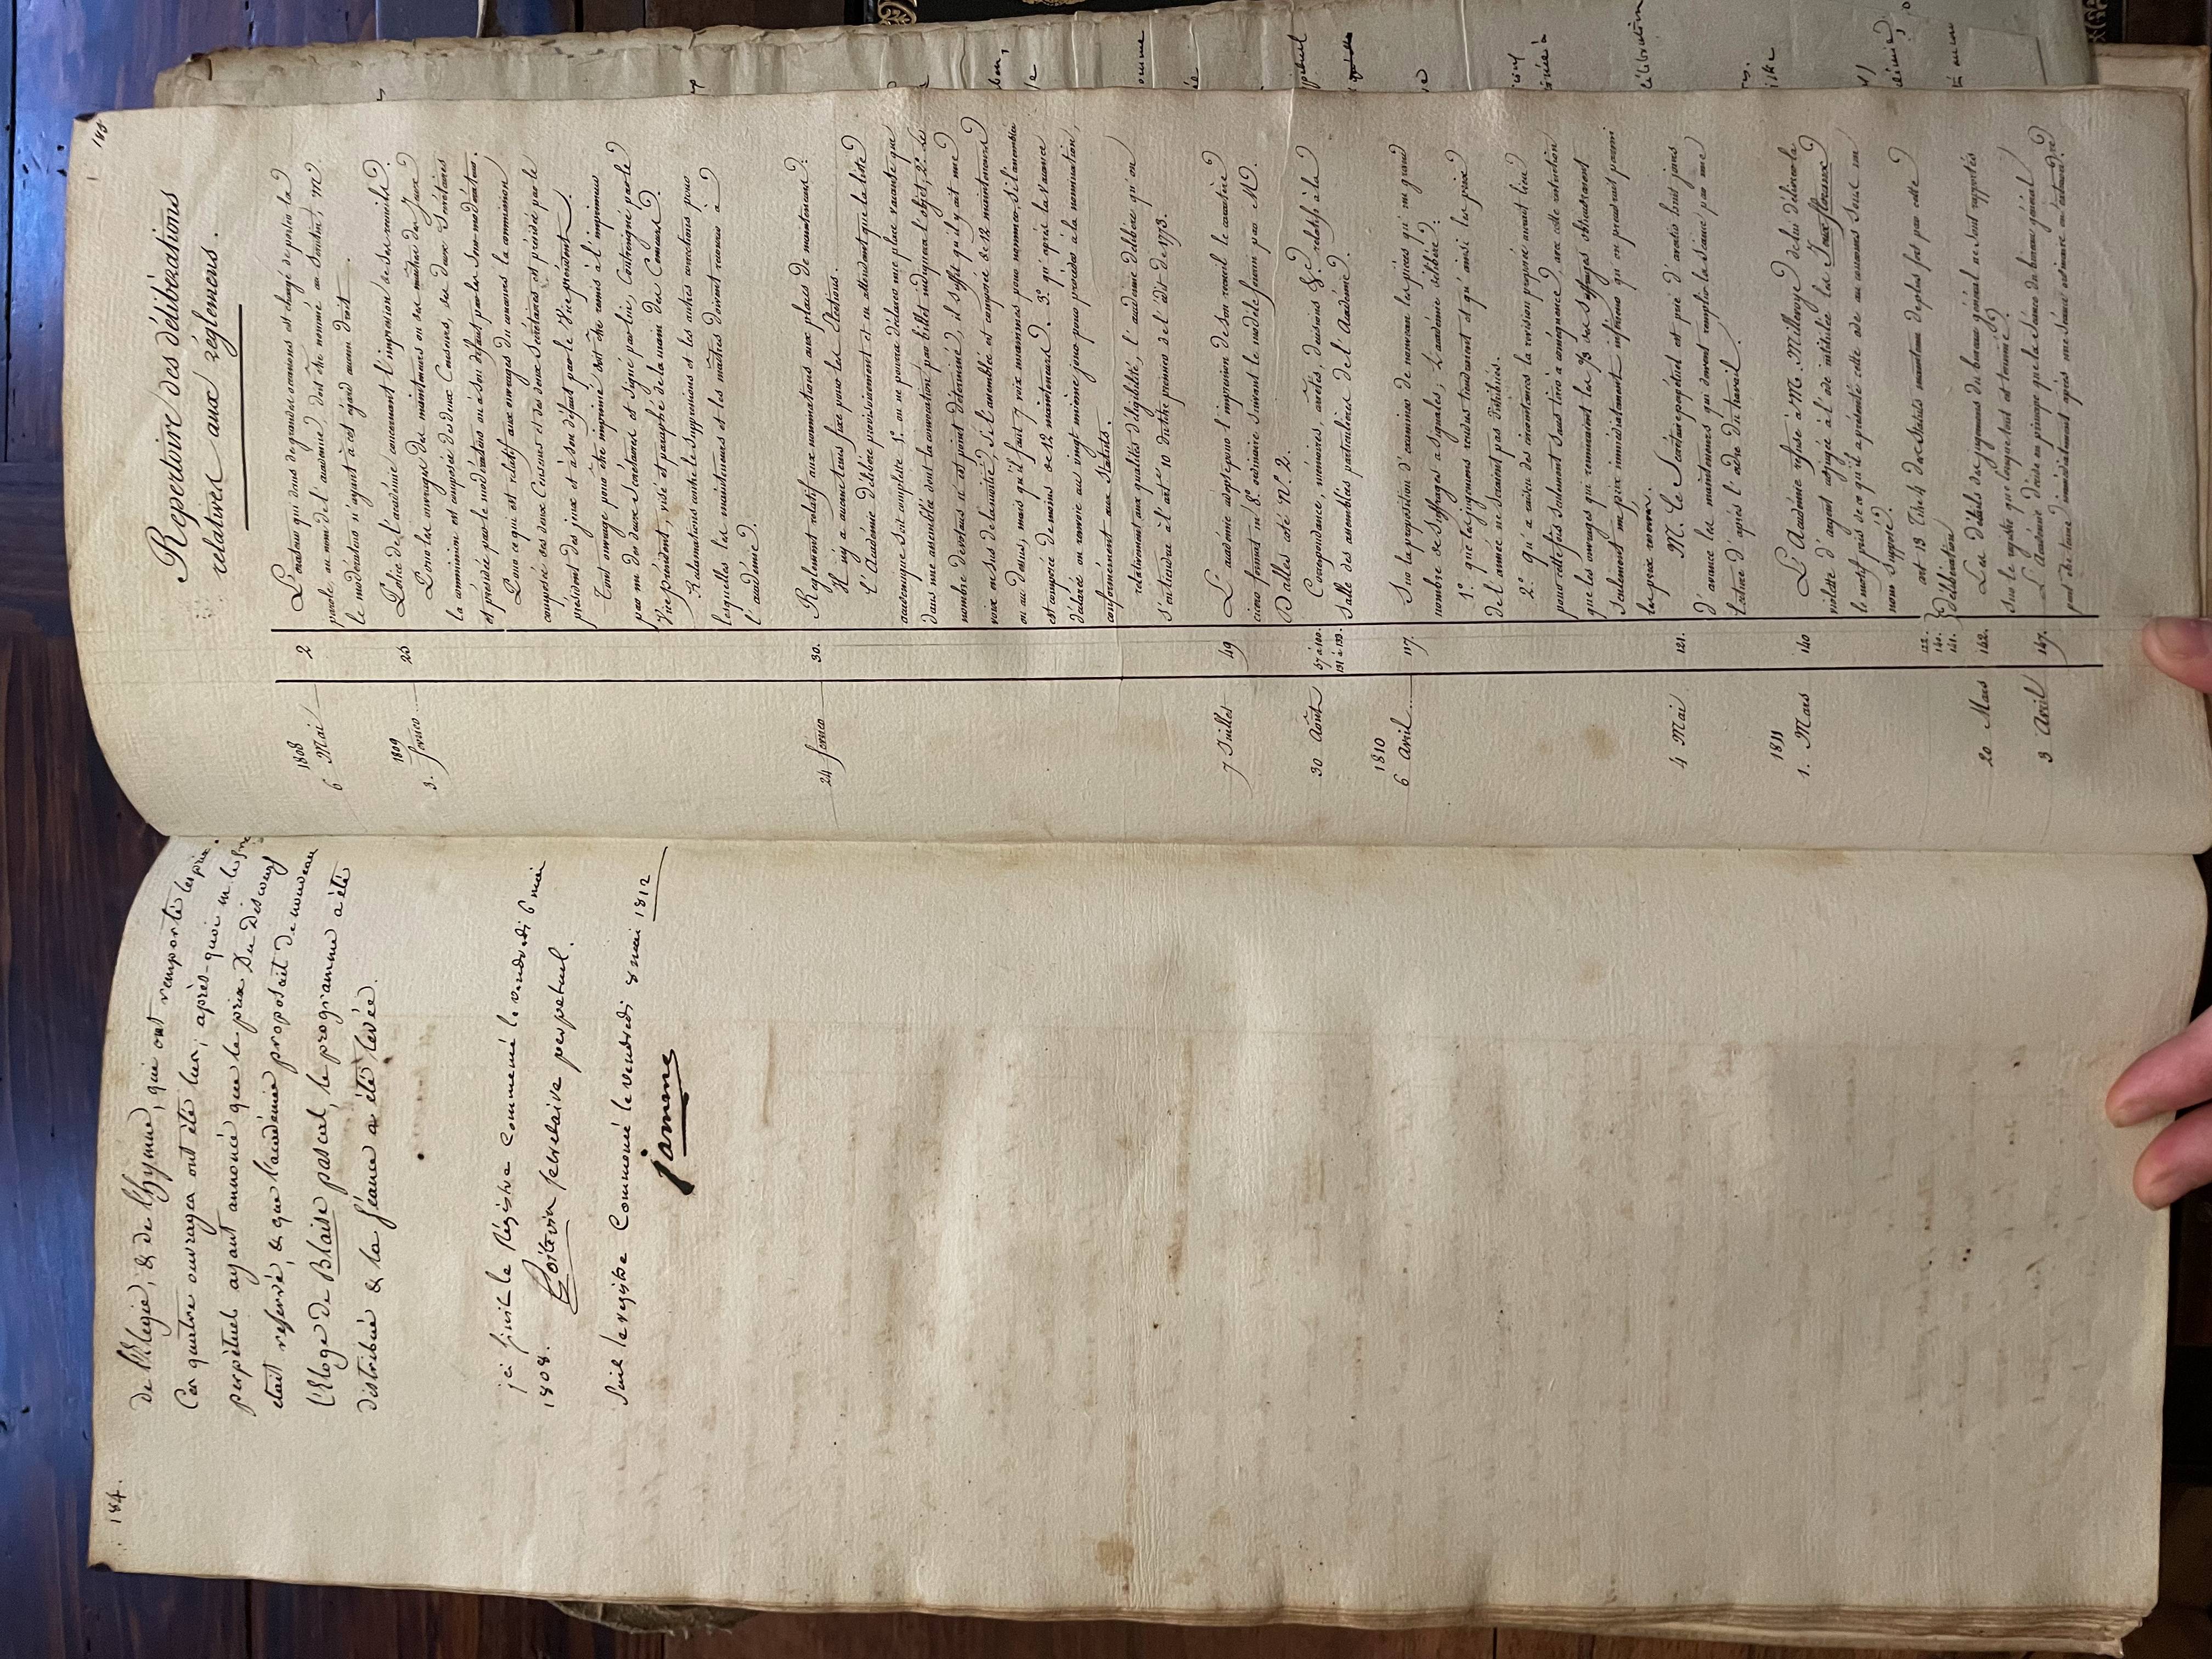 184.
de l'Elégie, & de l'hymne, qui ont remporté les prix.
Ces quatre ouvrages ont été lus, après-quoi m. le
perpétuel ayant annoncé que le prix Du Discours
etait reservé, & que l'académie proposait de nouveau
l'Eloge de Blaise pascal, le programme a été
distribué & la séance a été levée.
ici finit le Régistre Commencé le vendredi 6 mai
1808.
Poitevin secretaire perpetuel.
Suit le registre Commencé le vendredi 8 mai 1812
jamme
185
Repertoire des délibérations
relatives aux réglemens.
1808
6 Mai 2 L'orateur qui dans de grandes occasions est chargé de porter la
parole au nom de l'académie, doit être nommé au scrutin, M.
le modérateur n'ayant à cet égard aucun droit.
1809
3. fevrier 25 Police de l'académie concernant l'impression de son recueil.
Pour les ouvrages des mainteneurs ou des maîtres des Jeux
la commission est composée des deux Censeurs, des deux Secrétaires
et présidée par le modérateur ou à son défaut par le Sous-modérateur.
Pour ce qui est relatif aux ouvrages du concours la commission
composée des deux Censeurs et des deux Secrétaires est présidée par le
président des jeux et à son défaut par le Vice président.
Tout ouvrage pour être imprimé doit être remis à l'imprimeur
par un des deux Secrétaires et signé par lui, Contresigné par le
Vice président, visé et paraphé de la main des Censeurs.
Reclamations contre les Suppressions et les autres corrections pour
lesquelles les mainteneurs et les maîtres doivent recourir à
l'académie.
24 fevrier 30. Reglement relatif aux nominations aux places de mainteneurs.
Il n'y a aucun tems fixe pour les élections.
L'Académie délibère provisoirement et en attendant que la liste
academique soit complette 1.º on ne pourra déclarer une place vacante que
dans une assemblée dont la convocation par billet indiquera l'objet, 2.º le
nombre de votans n'est point déterminé, il suffit qu'il y ait une
voix en sus de la moitié, si l'assemblée est composée de 12 mainteneurs
ou au dessus, mais qu'il faut 7 voix unanimes pour nommer, si l'assemblée
est composée de moins de 12 mainteneurs. 3.º qu'après la vacance
déclarée on renvoie au vingt unieme jour pour procéder à la nomination,
conformément aux statuts.
relativement aux qualités d'éligibilité, l'académie délibère qu'on
s'en tiendra à l'art 10 du titre premier de l'édit de 1773.
7 Juillet 49 L'académie adopte pour l'impression de son recueil le caractère
cicero format in 8.º ordinaire suivant le modèle fourni par M.
Dalles coté N.º 2.
30 Août 57 à 100. Correspondance, mémoires, arrêtés, décisions &c. relatifs à la
131 à 139. Salle des assemblées particulières de l'Académie.
1810
6 Avril 117. Sur la proposition d'examiner de nouveau les pièces qui un grand
nombre de Suffrages a signalés, L'académie délibère:
1.º que les jugemens rendus tiendraient et qu'ainsi les prix
de l'année ne seraient pas distribués.
2.º Qu'à raison des circonstances la révision proposée aurait lieu
pour cette fois seulement sans tirer à conséquence, avec cette restriction
que les ouvrages qui réuniraient les 2/3 des suffrages obtiendraient
seulement un prix immédiatement inférieur qu'on prendrait parmi
les prix réservés.
4 Mai 121. M. le Secrétaire perpétuel est prié d'avertir huit jours
d'avance les mainteneurs qui doivent remplir la séance par une
lecture d'après l'ordre du travail.
1811
1. Mars 140 L'Académie refuse à M. Millevoye de lui délivrer la
violette d'argent adjugée à l'ode intitulée les Jeux floraux
le motif pris de ce qu'il a présenté cette ode au concours sous un
nom supposé.
122. 140. 141. art 13 Titre 4 des Statuts maintenu de plus fort par cette
délibération
20 Mars 142. Les détails des jugemens du bureau général ne sont rapportés
sur le registre que lorsque tout est terminé.
3 Avril 147. L'Académie décide en principe que la séance du bureau général
peut être tenue immédiatement après une séance ordinaire ou extraord.re